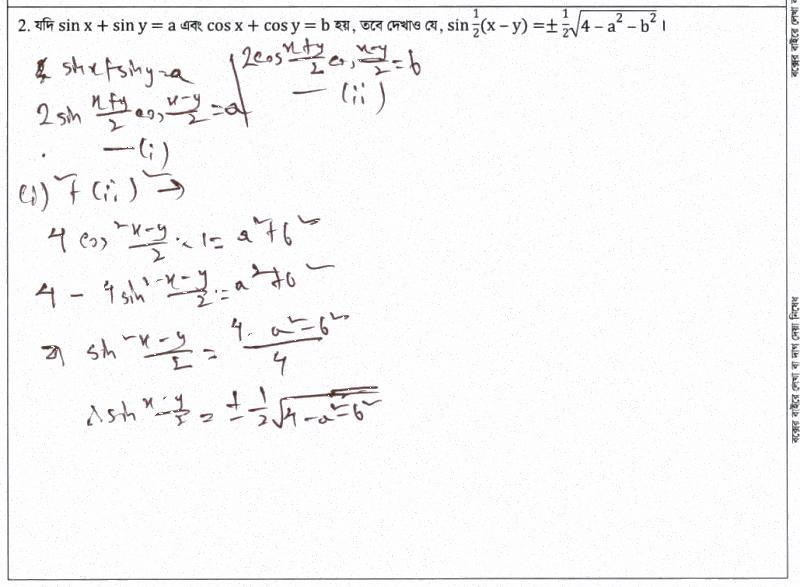 2. যদি sin x + sin y = a এবং cos x + cos y = b হয়, তবে দেখাও যে, sin ½(x − y) = ± ½√(4 − a² − b²) ।
sin x + sin y = a
2 sin (x+y)/2 cos (x−y)/2 = a
— (i)
2 cos (x+y)/2 cos (x−y)/2 = b
— (ii)
(i)² + (ii)² →
4 cos² (x−y)/2 · 1 = a² + b²
4 − 4 sin² (x−y)/2 = a² + b²
বা sin² (x−y)/2 = (4 − a² − b²)/4
∴ sin (x−y)/2 = ± ½√(4 − a² − b²)
বক্সের বাইরে লেখা বা দাগ দেয়া নিষেধ